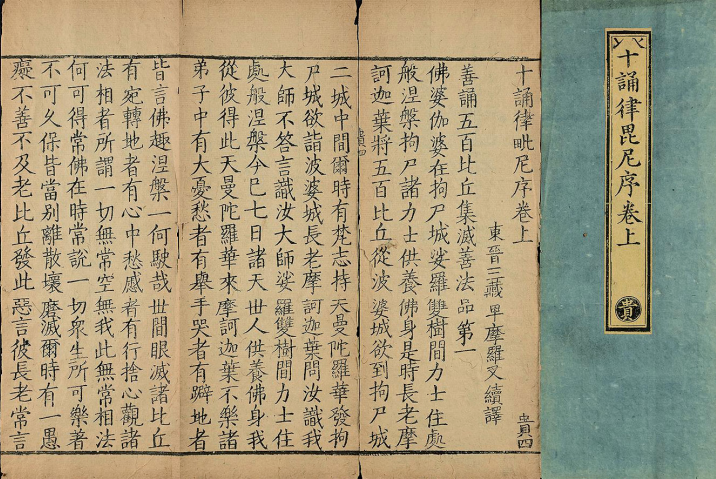 十誦律毘尼序卷上
貴
十誦律毗尼序卷上
貴四
東晉三藏卑摩羅叉續譯
善誦五百比丘集滅善法品第一
佛婆伽婆在拘尸城娑羅雙樹間力士住處
般涅槃拘尸諸力士供養佛身是時長老摩
訶迦葉將五百比丘從波婆城欲到拘尸城
貴四
二城中間爾時有梵志持天曼陀羅華發拘
尸城欲詣波婆城長老摩訶迦葉問汝識我
大師不答言識汝大師娑羅雙樹間力士住
處般涅槃今已七日諸天世人供養佛身我
從彼得此天曼陀羅華來摩訶迦葉不樂諸
弟子中有大憂愁者有舉手哭者有躃地者
皆言佛趣涅槃一何駛哉世間眼滅諸比丘
有宛轉地者有心中愁慼者有行捨心觀諸
法相者所謂一切無常空無我此無常相法
何可得常佛在時常說一切眾生所可樂著
不可久保皆當別離散壞磨滅爾時有一愚
癡不善不及老比丘發此惡言彼長老常言